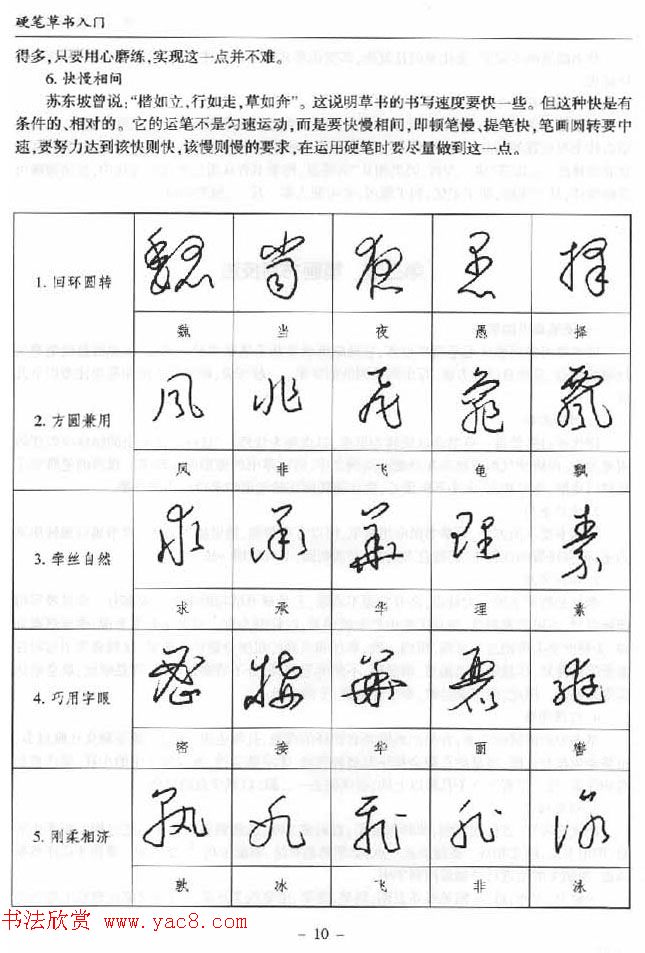 硬笔草书入门
得多,只要用心磨练,实现这一点并不难。
6. 快慢相间
苏东坡曾说:“楷如立,行如走,草如奔”。这说明草书的书写速度要快一些。但这种快是有
条件的、相对的。它的运笔不是匀速运动,而是要快慢相间,即顿笔慢、提笔快,笔画圆转要中
速,要努力达到该快则快,该慢则慢的要求,在运用硬笔时要尽量做到这一点。
1. 回环圆转
魏 当 夜 愚 择
2. 方圆兼用
风 非 飞 龟 飘
3. 牵丝自然
求 承 华 理 素
4. 巧用字眼
密 接 华 丽
5. 刚柔相济
孰 冰 飞 非 泳
书法欣赏 www.yac8.com
- 10 -